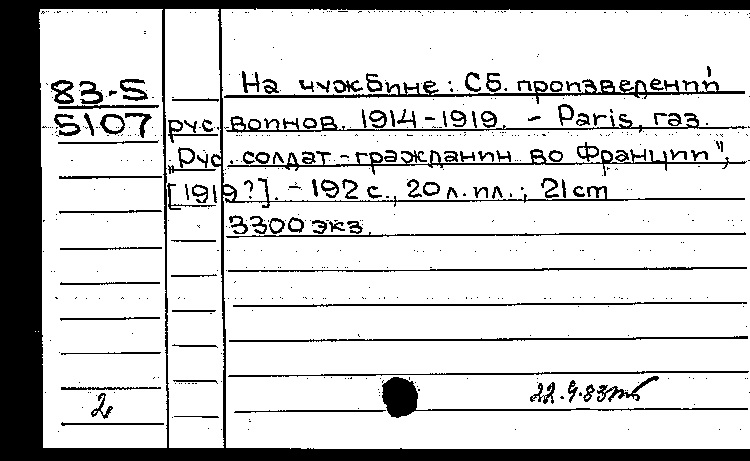 83-5
5107
На чужбине : Сб. произведений
рус. воинов. 1914-1919. - Paris, газ.
„Рус. солдат-гражданин во Франции",
[1919?]. - 192 с., 20 л. ил. ; 21 cm
3300 экз.
2